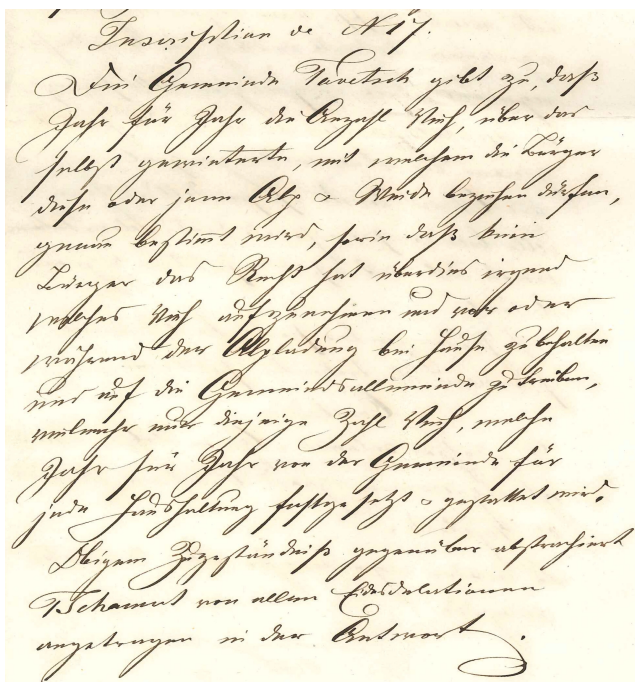 Inscription de N 17.
Die Gemeinde Tavetsch gibt zu, daß
Jahr für Jahr die Anzahl Vieh, über das
selbst gewinterte, mit welchem die Bürger
diese oder jene Alp & Weide beziehen dürfen,
genau bestimmt wird, sowie daß kein
Bürger das Recht hat überdies irgend
welches Vieh aufzunehmen und vor oder
während der Alpladung bei Hause zu behalten
und auf die Gemeindsallmeinde zu treiben,
vielmehr nur diejenige Zahl Vieh, welche
Jahr für Jahr von der Gemeinde für
jede Haushaltung festgesetzt & gestattet wird.
Obigem Zugeständniß gegenüber abstrahiert
Tschamut von allen Eidesdelationen
angetragen in der Antwort.